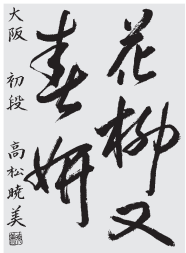 花柳又
春妍
大阪 初段 高松暁美